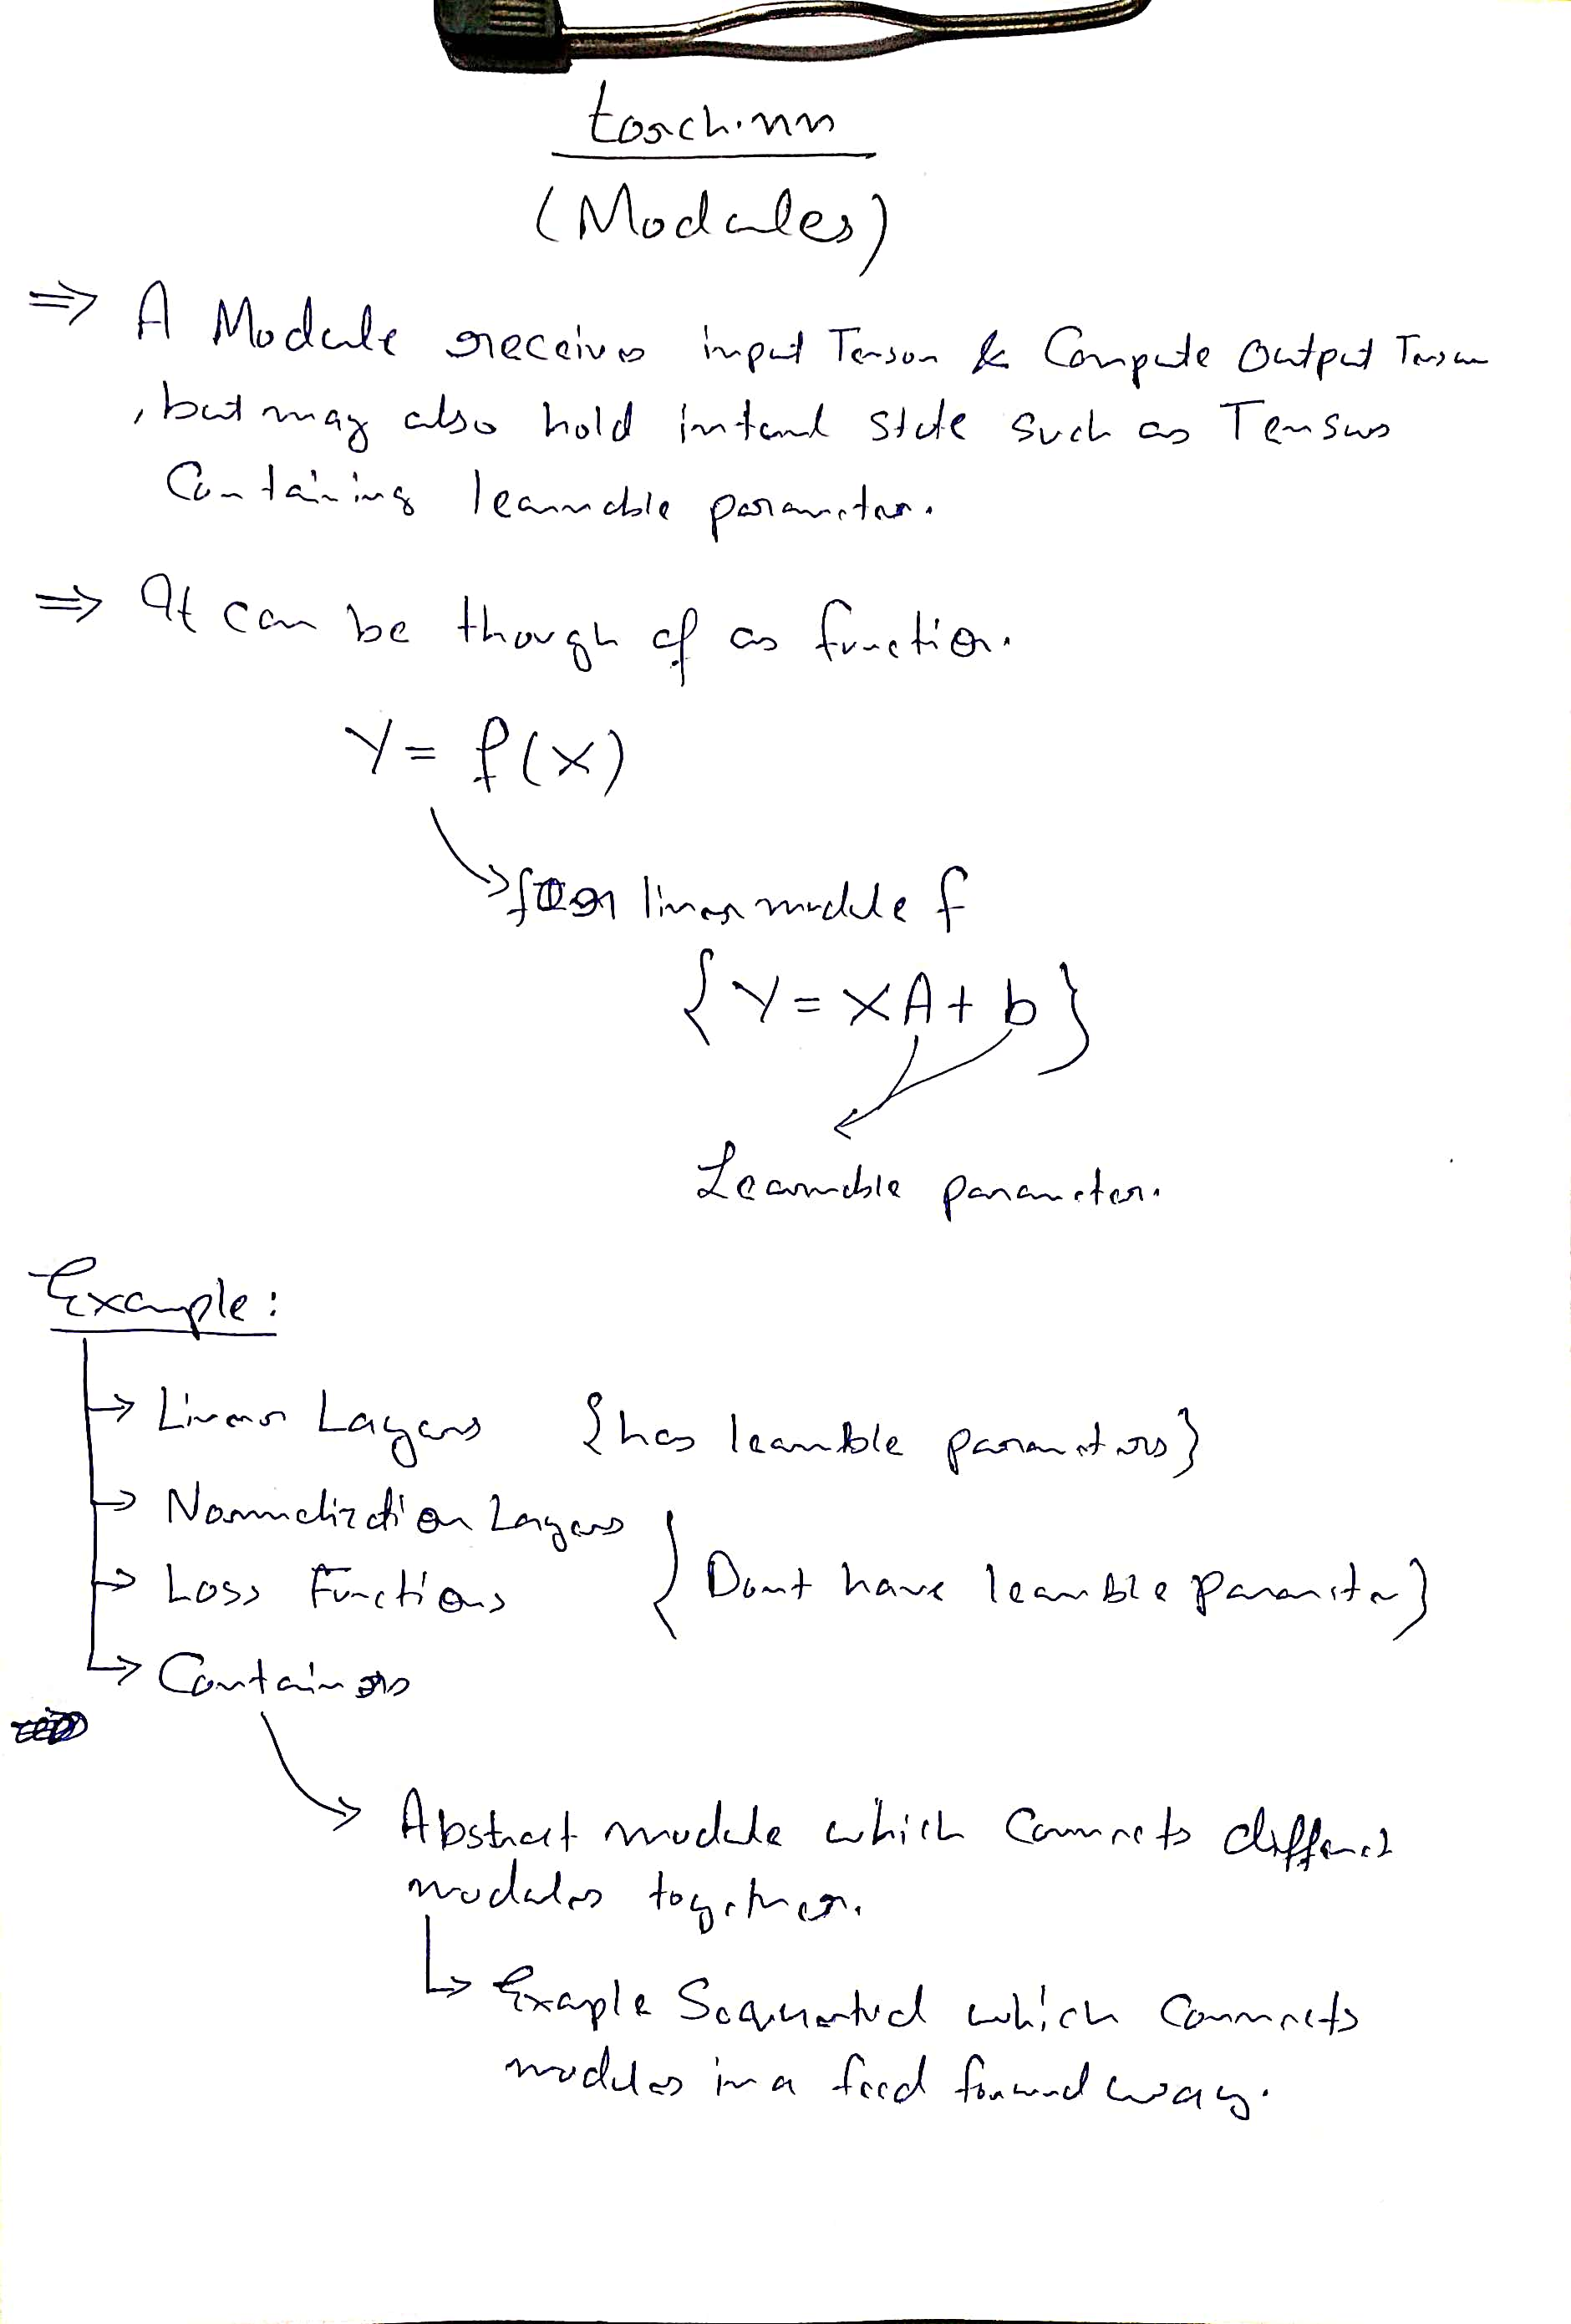 torch.nn
(Modules)
⇒ A Module receives input Tensor & Compute Output Tensor
, but may also hold internal state such as Tensors
Containing learnable parameter.
⇒ It can be though of as function.
Y = f(X)
for linear module f
{Y = XA + b}
Learnable parameter.
Example:
→ Linear Layers {has learnable parameters}
→ Normalization Layers
→ Loss Functions { Dont have learnable Parameter}
→ Containers
Abstract module which Connects different
modules together.
Example Sequential which Connects
modules in a feed forward way.